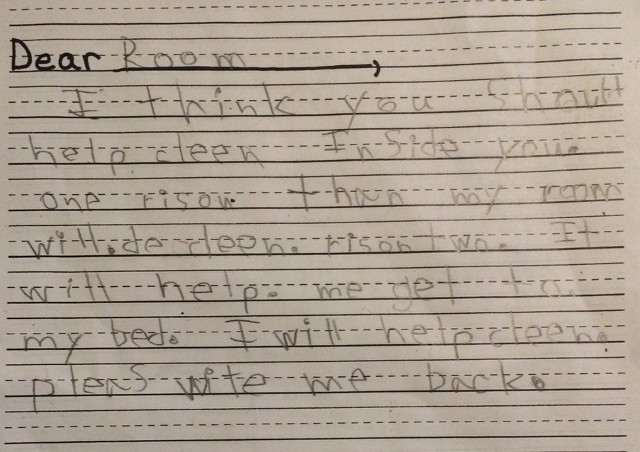 Dear Room
I think you shoutt
help cleen Inside you.
one rison. than my room
will.de cleen. rison two. It
will help. me get to
my bed. I will help cleen.
pleas wite me back.